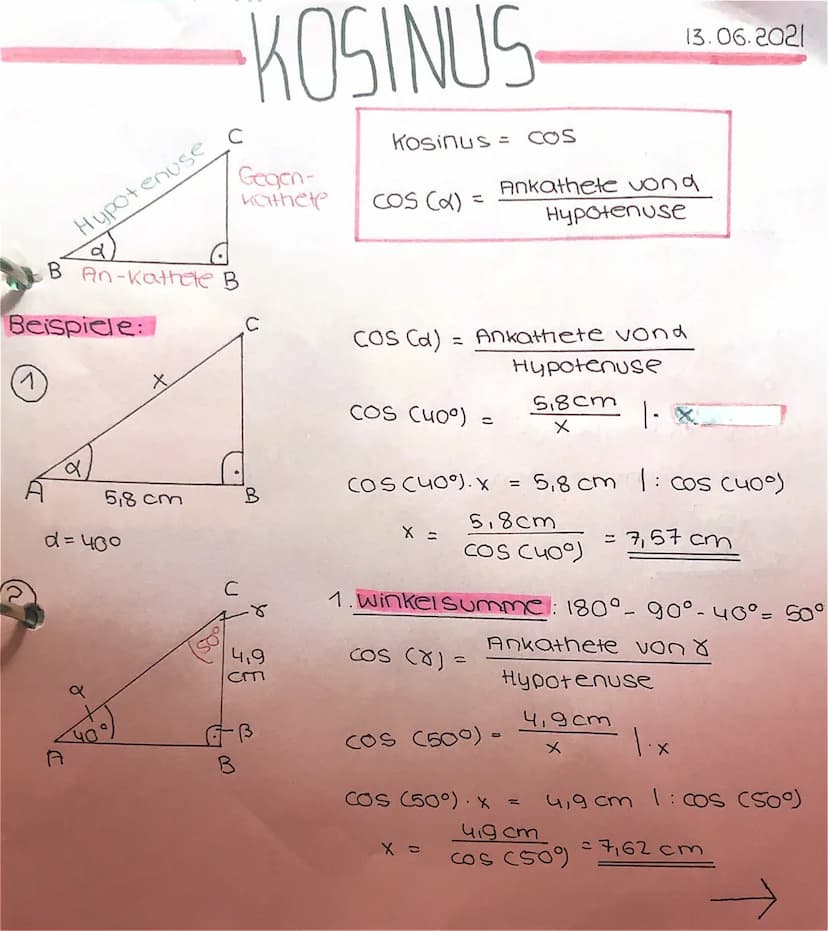 KOSINUS
13.06.2021
C
Hypotenuse
Gegen-
kathete
α
B An-Kathete B
Kosinus = cos
cos (α) = Ankathete von α / Hypotenuse
Beispiele:
①
C
x
α
A
5,8 cm
B
α = 40°
cos (α) = Ankathete von α / Hypotenuse
cos (40°) = 5,8 cm / x | · x
cos (40°) · x = 5,8 cm | : cos (40°)
x = 5,8 cm / cos (40°) = 7,57 cm
②
C
γ
50°
4,9
cm
α
40°
β
A
B
1. Winkelsumme: 180° - 90° - 40° = 50°
cos (γ) = Ankathete von γ / Hypotenuse
cos (50°) = 4,9 cm / x | · x
cos (50°) · x = 4,9 cm | : cos (50°)
x = 4,9 cm / cos (50°) = 7,62 cm
→